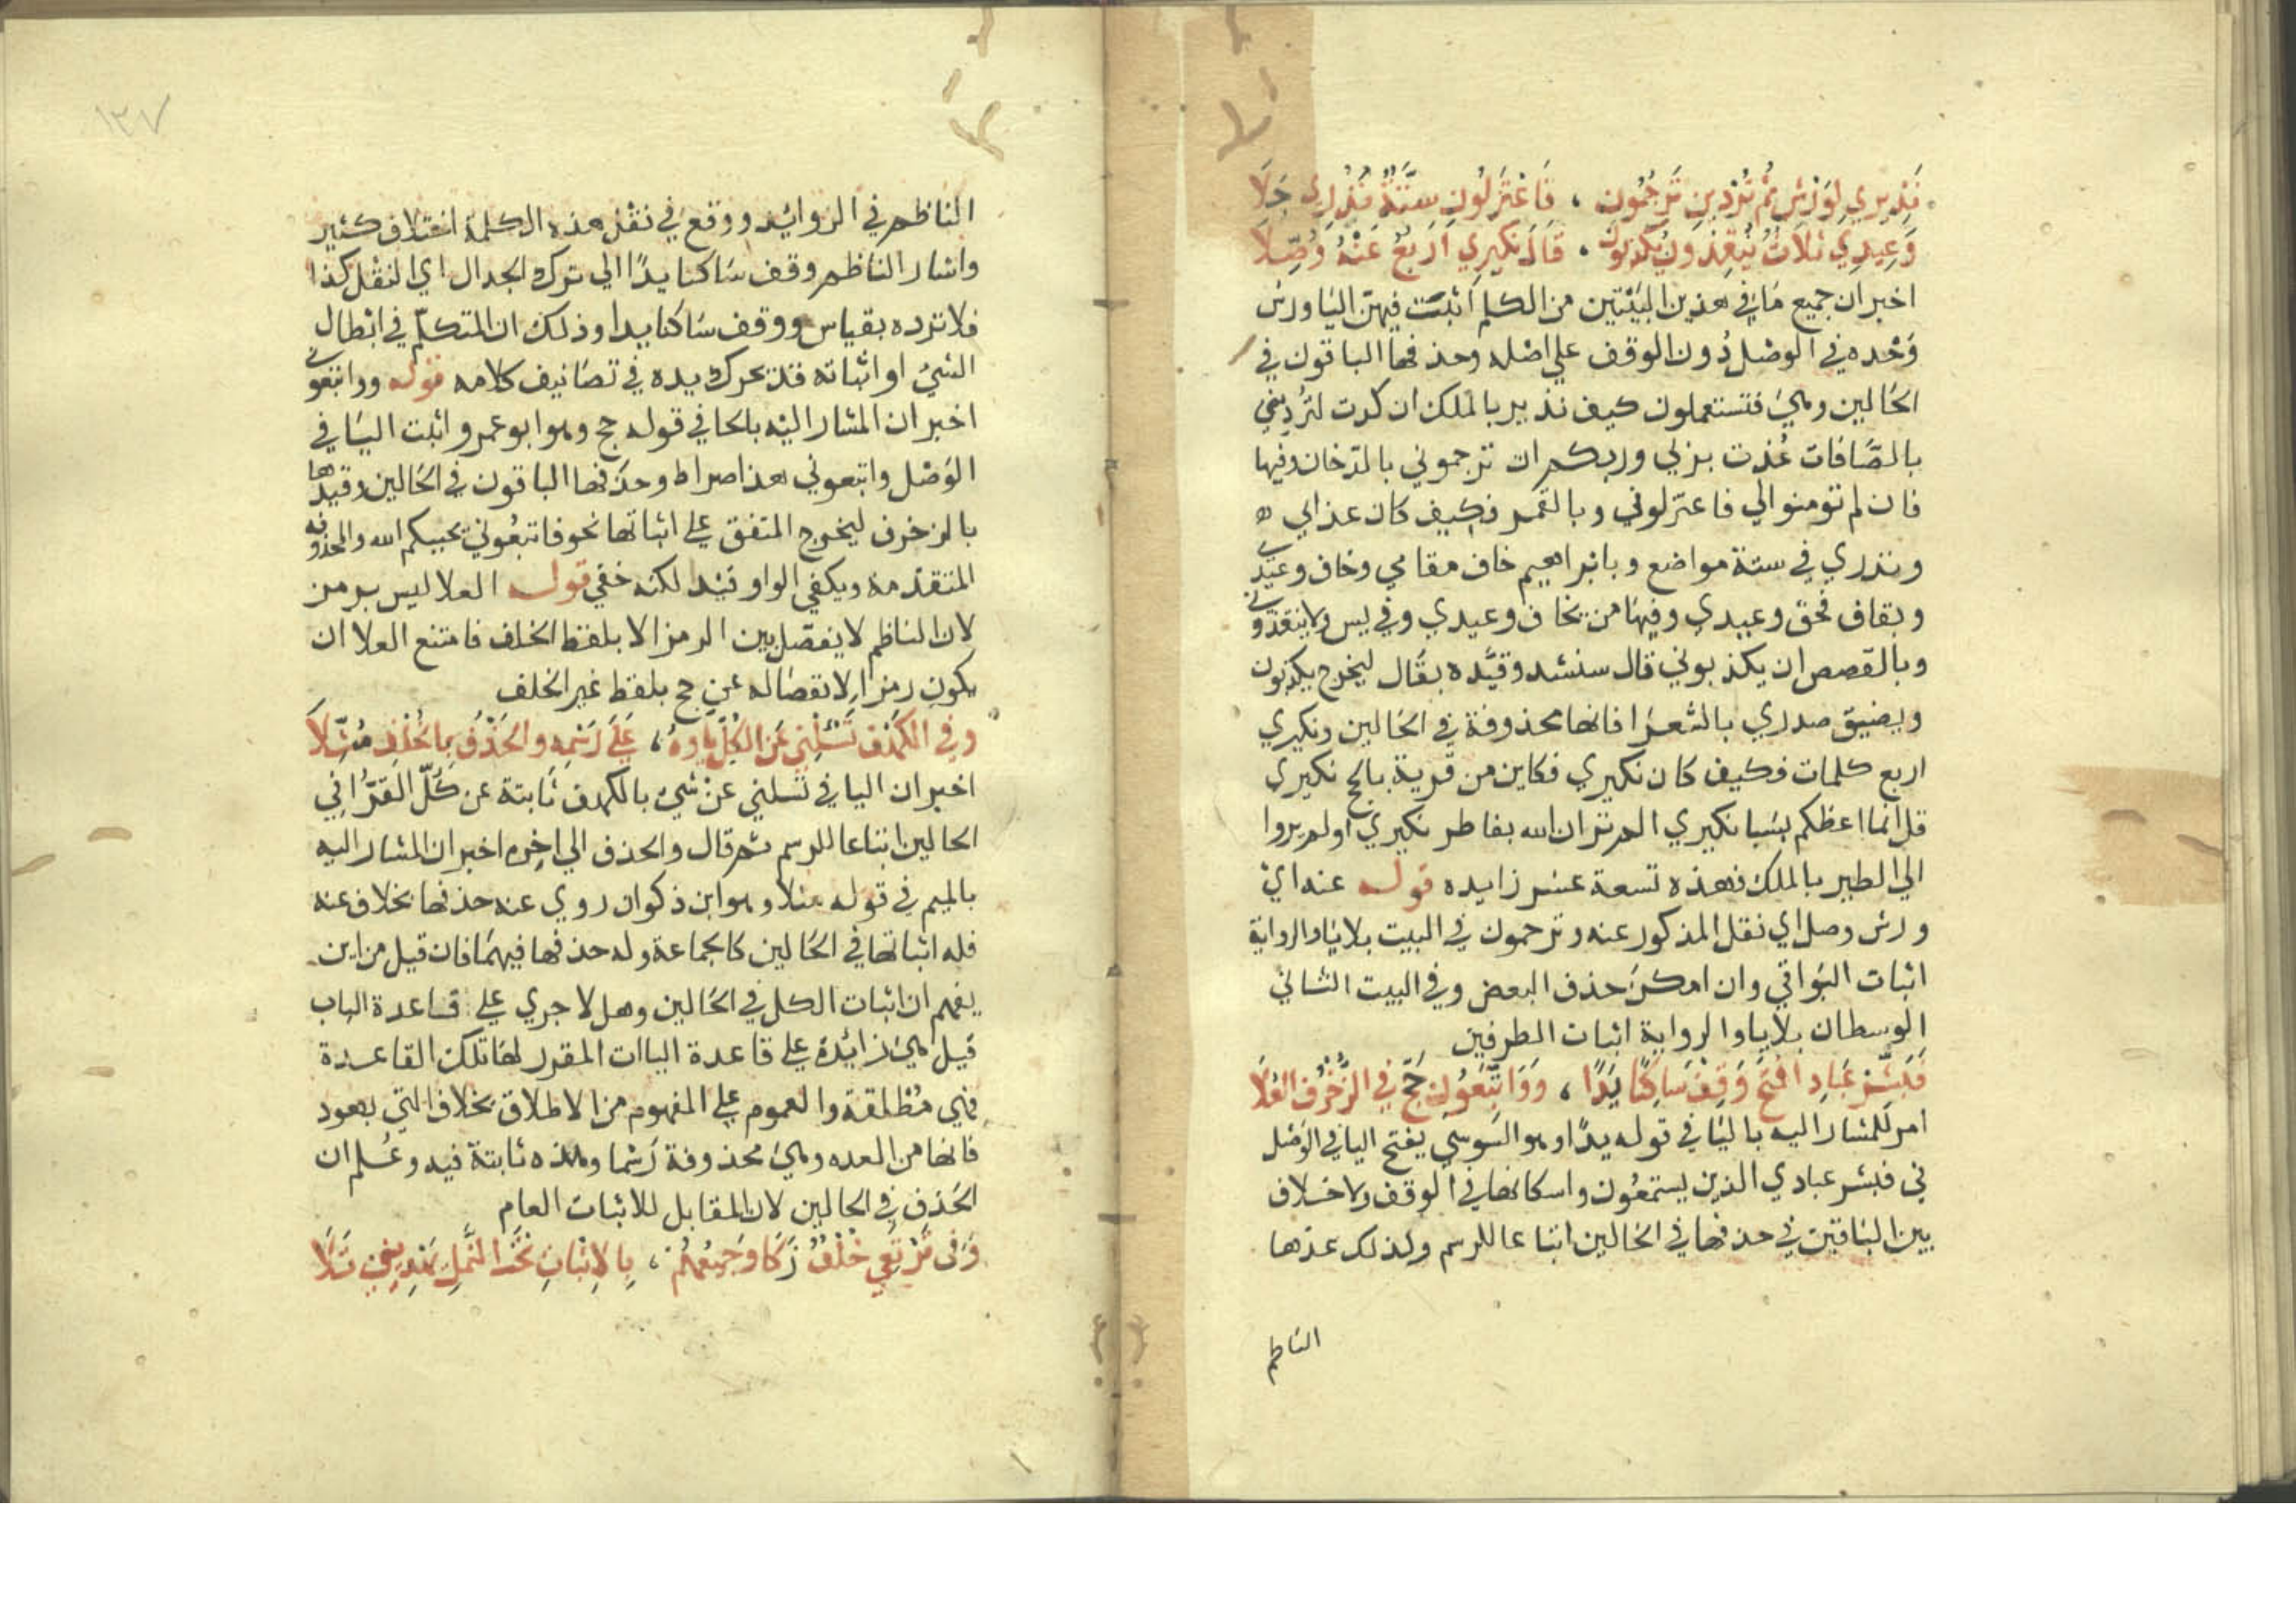 نَذِيرِي لِوَرْشٍ ثُمَّ تُرْدِينِ تَرْجُمُونِ ، فَاعْتَزِلُونِ سِتَّةٌ نُذُرِي جَلَا
وَعِيدِي ثَلَاثٌ يُنْقِذُونِ يُكَذِّبُونِ ، قَالَ نَكِيرِي أَرْبَعٌ عَنْهُ وُصِّلَا
اخبر ان جميع ما في هذين البيتين من الكلم اثبت فيهن اليا ورش
وحده في الوصل دون الوقف على اصله وحذفها الباقون في
الحالين وهي فتستعملون كيف نذير بالملك ان كدت لتردين
بالصافات عذت بربي وربكم ان ترجموني بالدخان وفيها
فان لم تومنوا لي فاعتزلوني وبالقمر فكيف كان عذابي
ونذري في ستة مواضع وبابراهيم خاف مقامي وخاف وعيدي
وبقاف فحق وعيدي وفيها من يخاف وعيدي وفي يس ولا ينقذوني
وبالقصص ان يكذبوني قال سنشد وقيده بقال ليخرج يكذبون
ويضيق صدري بالشعرا فانها محذوفة في الحالين ونكيري
اربع كلمات فكيف كان نكيري فكاين من قرية بالحج نكيري
قل انما اعظكم بسبا نكيري الم تر ان الله بفاطر نكيري اولم يروا
الى الطير بالملك فهذه تسعة عشر زايده قوله عنه اي
ورش وصل اي نقل المذكور عنه وترجمون في البيت بلا يا والرواية
اثبات البواقي وان امكن حذف البعض وفي البيت الثاني
الوسطان بلا يا والرواية اثبات الطرفين
فَبَشِّرْ عِبَادِ افْتَحْ وَقِفْ سَاكِنًا يَدًا ، وَوَاتَّبِعُونِي حَجَّ فِي الزُّخْرُفِ الْعُلَا
امر للمشار اليه باليا في قوله يدا وهو السوسي بفتح اليا في الوصل
في فبشر عبادي الذين يستمعون واسكانها في الوقف ولا خلاف
بين الباقين في حذفها في الحالين اتباعا للرسم ولذلك عدها
الناظم
١٣٧
الناظم في الزوائد ووقع في نقل هذه الكلمة اختلاف كثير
واشار الناظم وقف ساكنا يدا الى ترك الجدال اي النقل كذا
فلا ترده بقياس ووقف ساكنا يدا وذلك ان المتكلم في ابطال
الشي او اثباته قد يحرك يده في تصانيف كلامه قوله وواتبعوني
اخبر ان المشار اليه بالحا في قوله حج وهو ابو عمرو اثبت اليا في
الوصل واتبعوني هذا صراط وحذفها الباقون في الحالين وقيدها
بالزخرف ليخرج المتفق على اثباتها نحو فاتبعوني يحببكم الله والمحذوفه
المتقدمة ويكفي الواو قيد لكنه خفي قوله العلا ليس برمز
لان الناظم لا يفصل بين الرمز الا بلفظ الخلف فامتنع العلا ان
يكون رمزا لانفصاله عن حج بلفظ غير الخلف
وَفِي الْكَهْفِ تَسْئَلْنِي عَنِ الْكُلِّ يَاؤُهُ ، عَلَى رَسْمِهِ وَالْحَذْفُ بِالْخُلْفِ مُثِّلَا
اخبر ان اليا في تسلني عن شي بالكهف ثابتة عن كل القرا في
الحالين اتباعا للرسم ثم قال والحذف الى اخره اخبر ان المشار اليه
بالميم في قوله مثلا وهو ابن ذكوان روي عنه حذفها بخلاف عنه
فله اثباتها في الحالين كالجماعة وله حذفها فيهما فان قيل من اين
يفهم ان اثبات الكل في الحالين وهلا جري على قاعدة الباب
قيل هي زائدة على قاعدة الياات المقرر لها تلك القاعدة
فهي مطلقة والعموم على المفهوم من الاطلاق بخلاف التي بهود
فانها من العده وهي محذوفة رسما وهذه ثابتة فيه وعلم ان
الحذف في الحالين لان المقابل للاثبات العام
وَفِي نَرْتَعِي خُلْفٌ زَكَا وَجَمِيعُهُمْ ، بِالْإِثْبَاتِ تَحْتَ النَّمْلِ يَهْدِيَنِي تَلَا